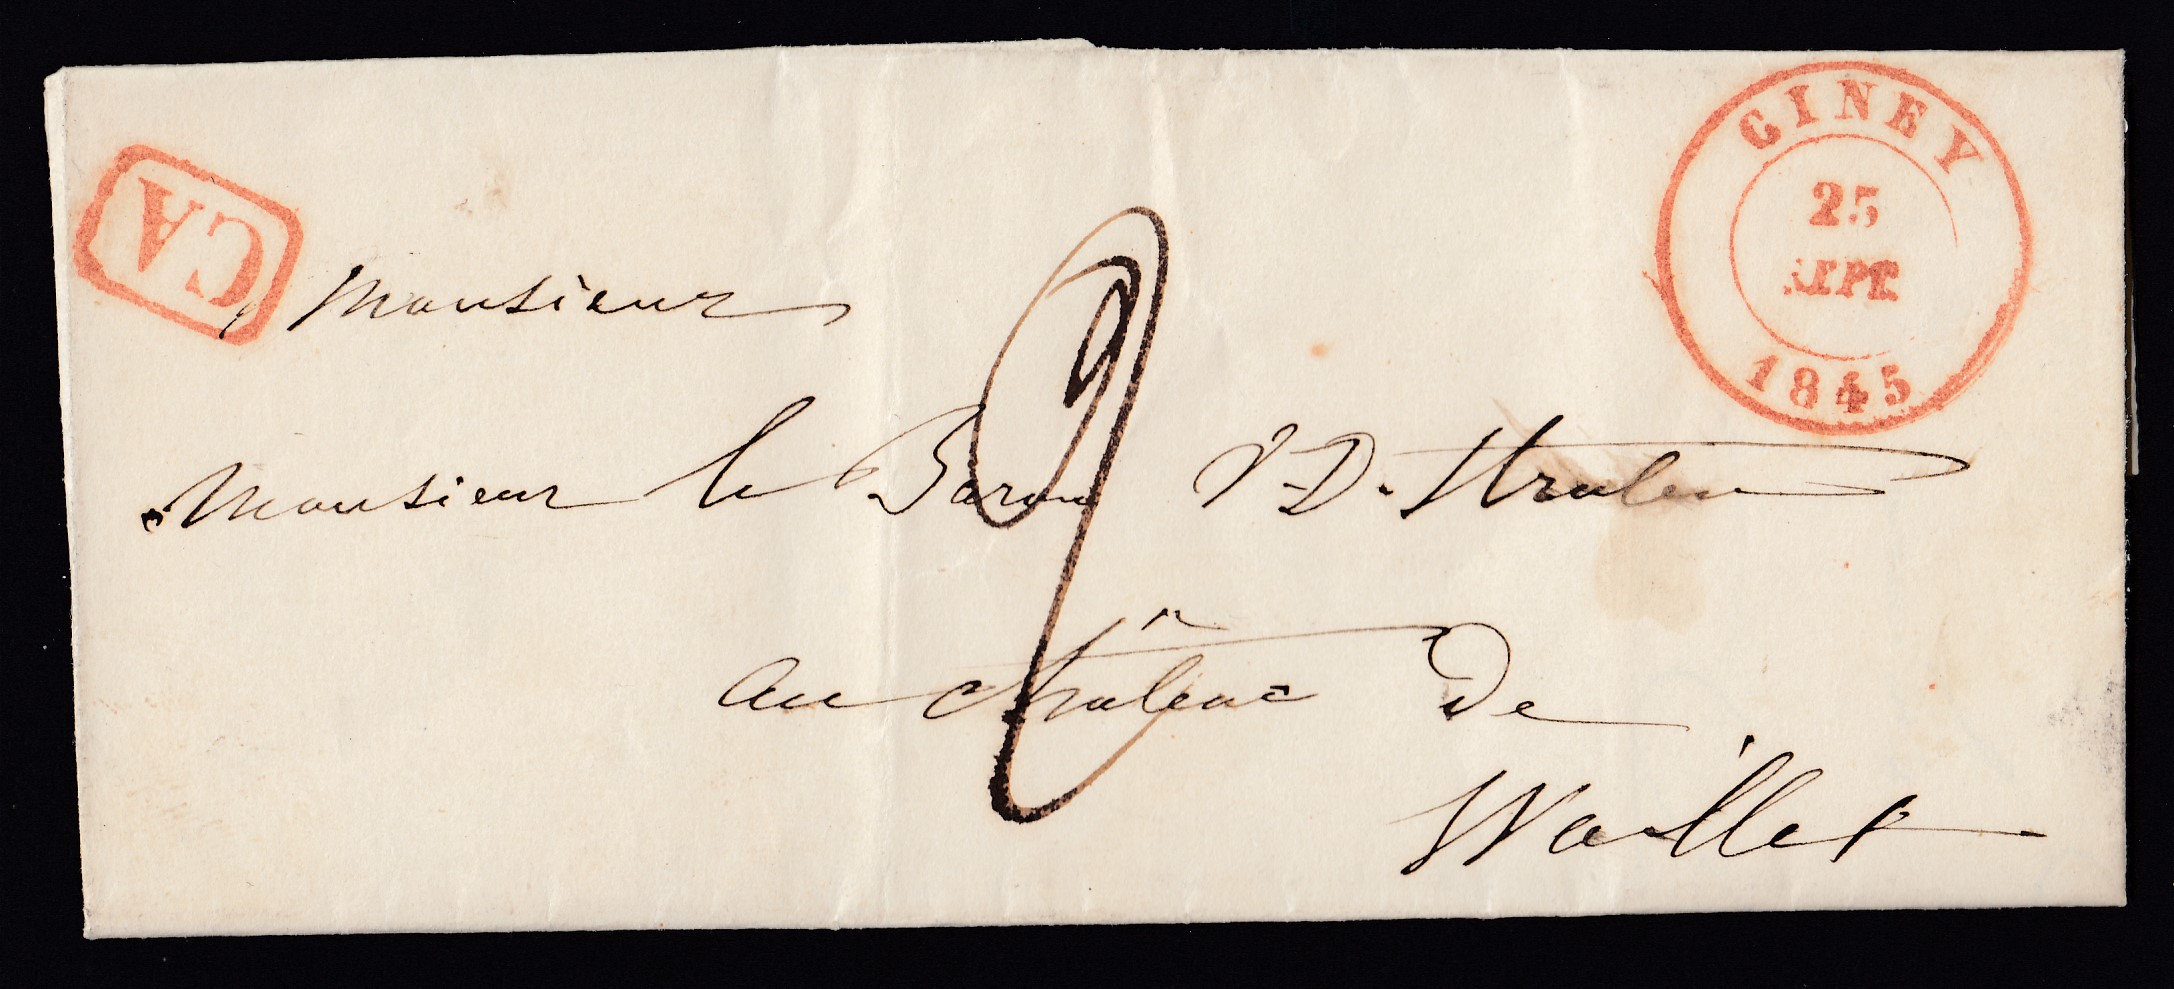 CINEY
25
SEPT
1845
CA
Monsieur
Monsieur le Baron V.D. Straten
2
au château de
Waillet